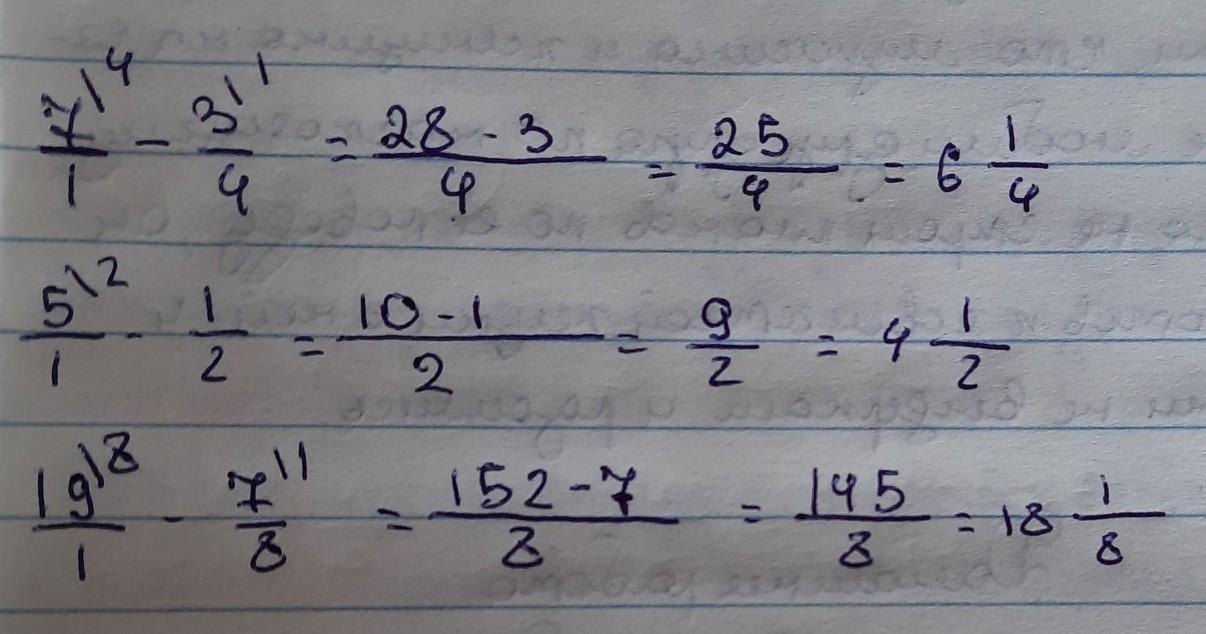 7\4/1 - 3\1/4 = 28-3/4 = 25/4 = 6 1/4
5\2/1 - 1/2 = 10-1/2 = 9/2 = 4 1/2
19\8/1 - 7\1/8 = 152-7/8 = 145/8 = 18 1/8